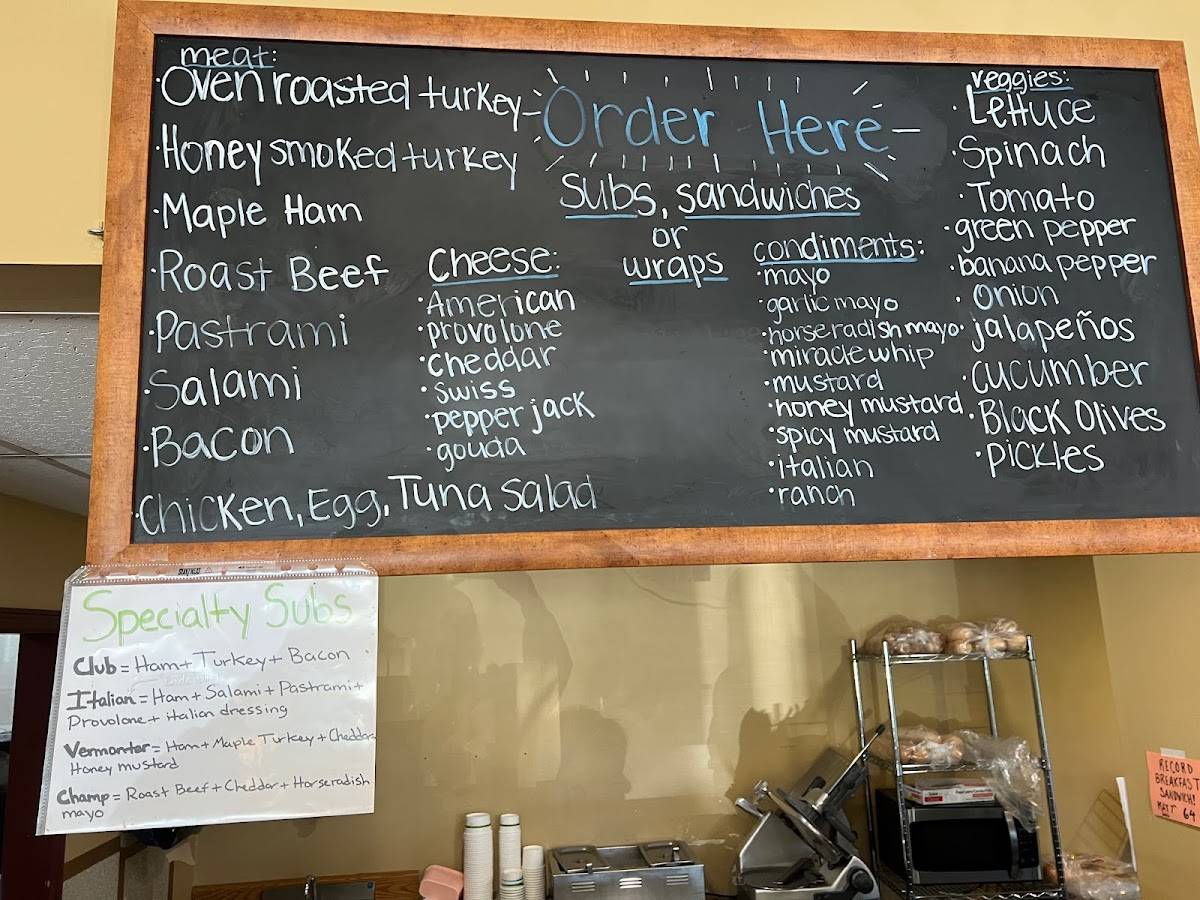 meat:
· Oven roasted turkey
· Honey smoked turkey
· Maple Ham
· Roast Beef
· Pastrami
· Salami
· Bacon
· Chicken, Egg, Tuna Salad
Order Here
Subs, sandwiches
or
wraps
Cheese:
· American
· provolone
· cheddar
· swiss
· pepper jack
· gouda
condiments:
· mayo
· garlic mayo
· horseradish mayo
· miracle whip
· mustard
· honey mustard
· spicy mustard
· italian
· ranch
veggies:
· Lettuce
· Spinach
· Tomato
· green pepper
· banana pepper
· onion
· jalapeños
· cucumber
· Black Olives
· pickles
Specialty Subs
Club = Ham + Turkey + Bacon
Italian = Ham + Salami + Pastrami +
Provolone + italian dressing
Vermonter = Ham + Maple Turkey + Cheddar
Honey mustard
Champ = Roast Beef + Cheddar + Horseradish
mayo
RECORD
BREAKFAST
SANDWICH
MATT 64